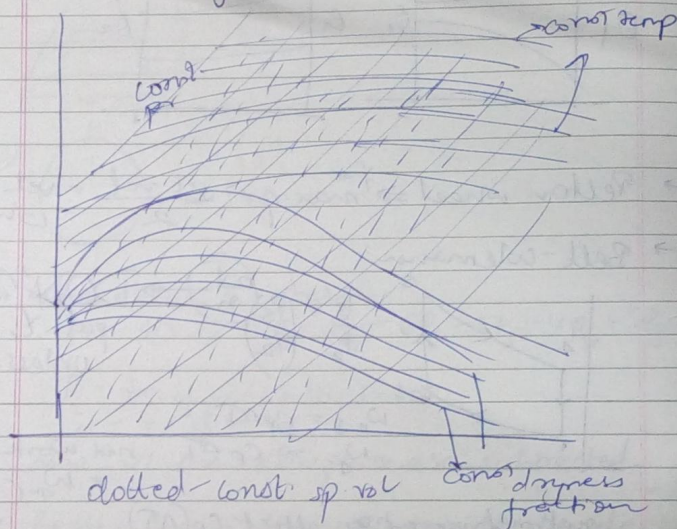 const temp
const
pr
dotted - const. sp. vol
const dryness
fraction